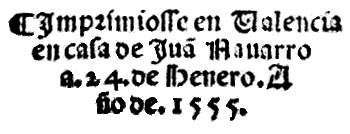 ¶Imprimiosse en Ualencia
en casa de Juã Nauarro
a. 24. de Henero. A
ño de. 1555.